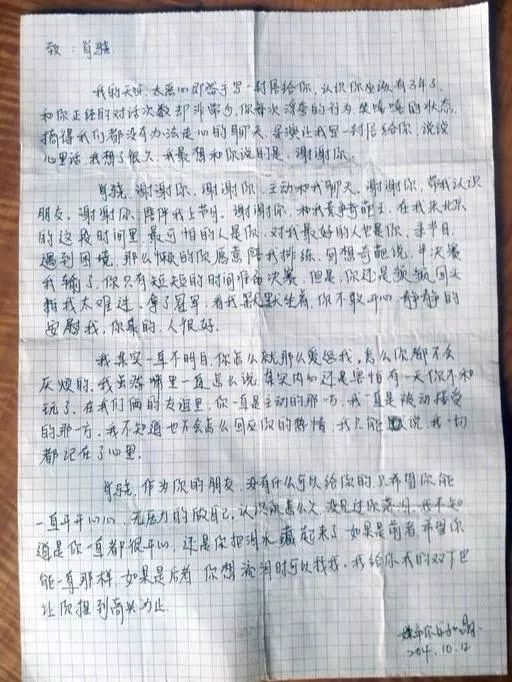 致：肖骁
我的天呀,太恶心即答于写一封信给你,认识你应该有3年了,
和你正经的对话次数却非常少,你每次浮夸的行为,笑嘻嘻的状态,
搞得我们都没有办法走心的聊天,导演让我写一封信给你,说说
心里话,我想了很久,我最想和你说的是,谢谢你.
肖骁,谢谢你,谢谢你,主动和我聊天,谢谢你,带我认识
朋友,谢谢你,陪伴我上节目,谢谢你,和我竞争奇葩王,在我来北京
的这段时间里,最可怕的人是你,对我最好的人也是你,录节目
遇到困境,那么懒的你愿意陪我排练,回想奇葩说,半决赛
我输了,你只有短短的时间准备决赛,但是,你还是频频回头
怕我太难过,拿了冠军,看我默默坐着,你不敢开心,静静的
安慰我,你真的,人很好.
我其实一直不明白,你怎么就那么爱惹我,怎么你都不会
厌烦的,我虽然嘴里一直怎么说,其实内心还是害怕有一天你不和
玩了,在我们俩的友谊里,你一直是主动的那一方,我一直是被动接受
的那一方,我不知道也不会怎么回应你的热情,我只能说,我一切
都记在了心里.
肖骁,作为你的朋友,没有什么可以给你的,只希望你能
一直开开心心,无压力的做自己,认识你怎么久,没见过你落泪,我不知
道是你一直都很开心,还是你把泪水藏起来了,如果是前者,希望你
能一直那样,如果是后者,你想流泪时可以找我,我给你我的双下巴
让你捏到高兴为止.
2014.10.12